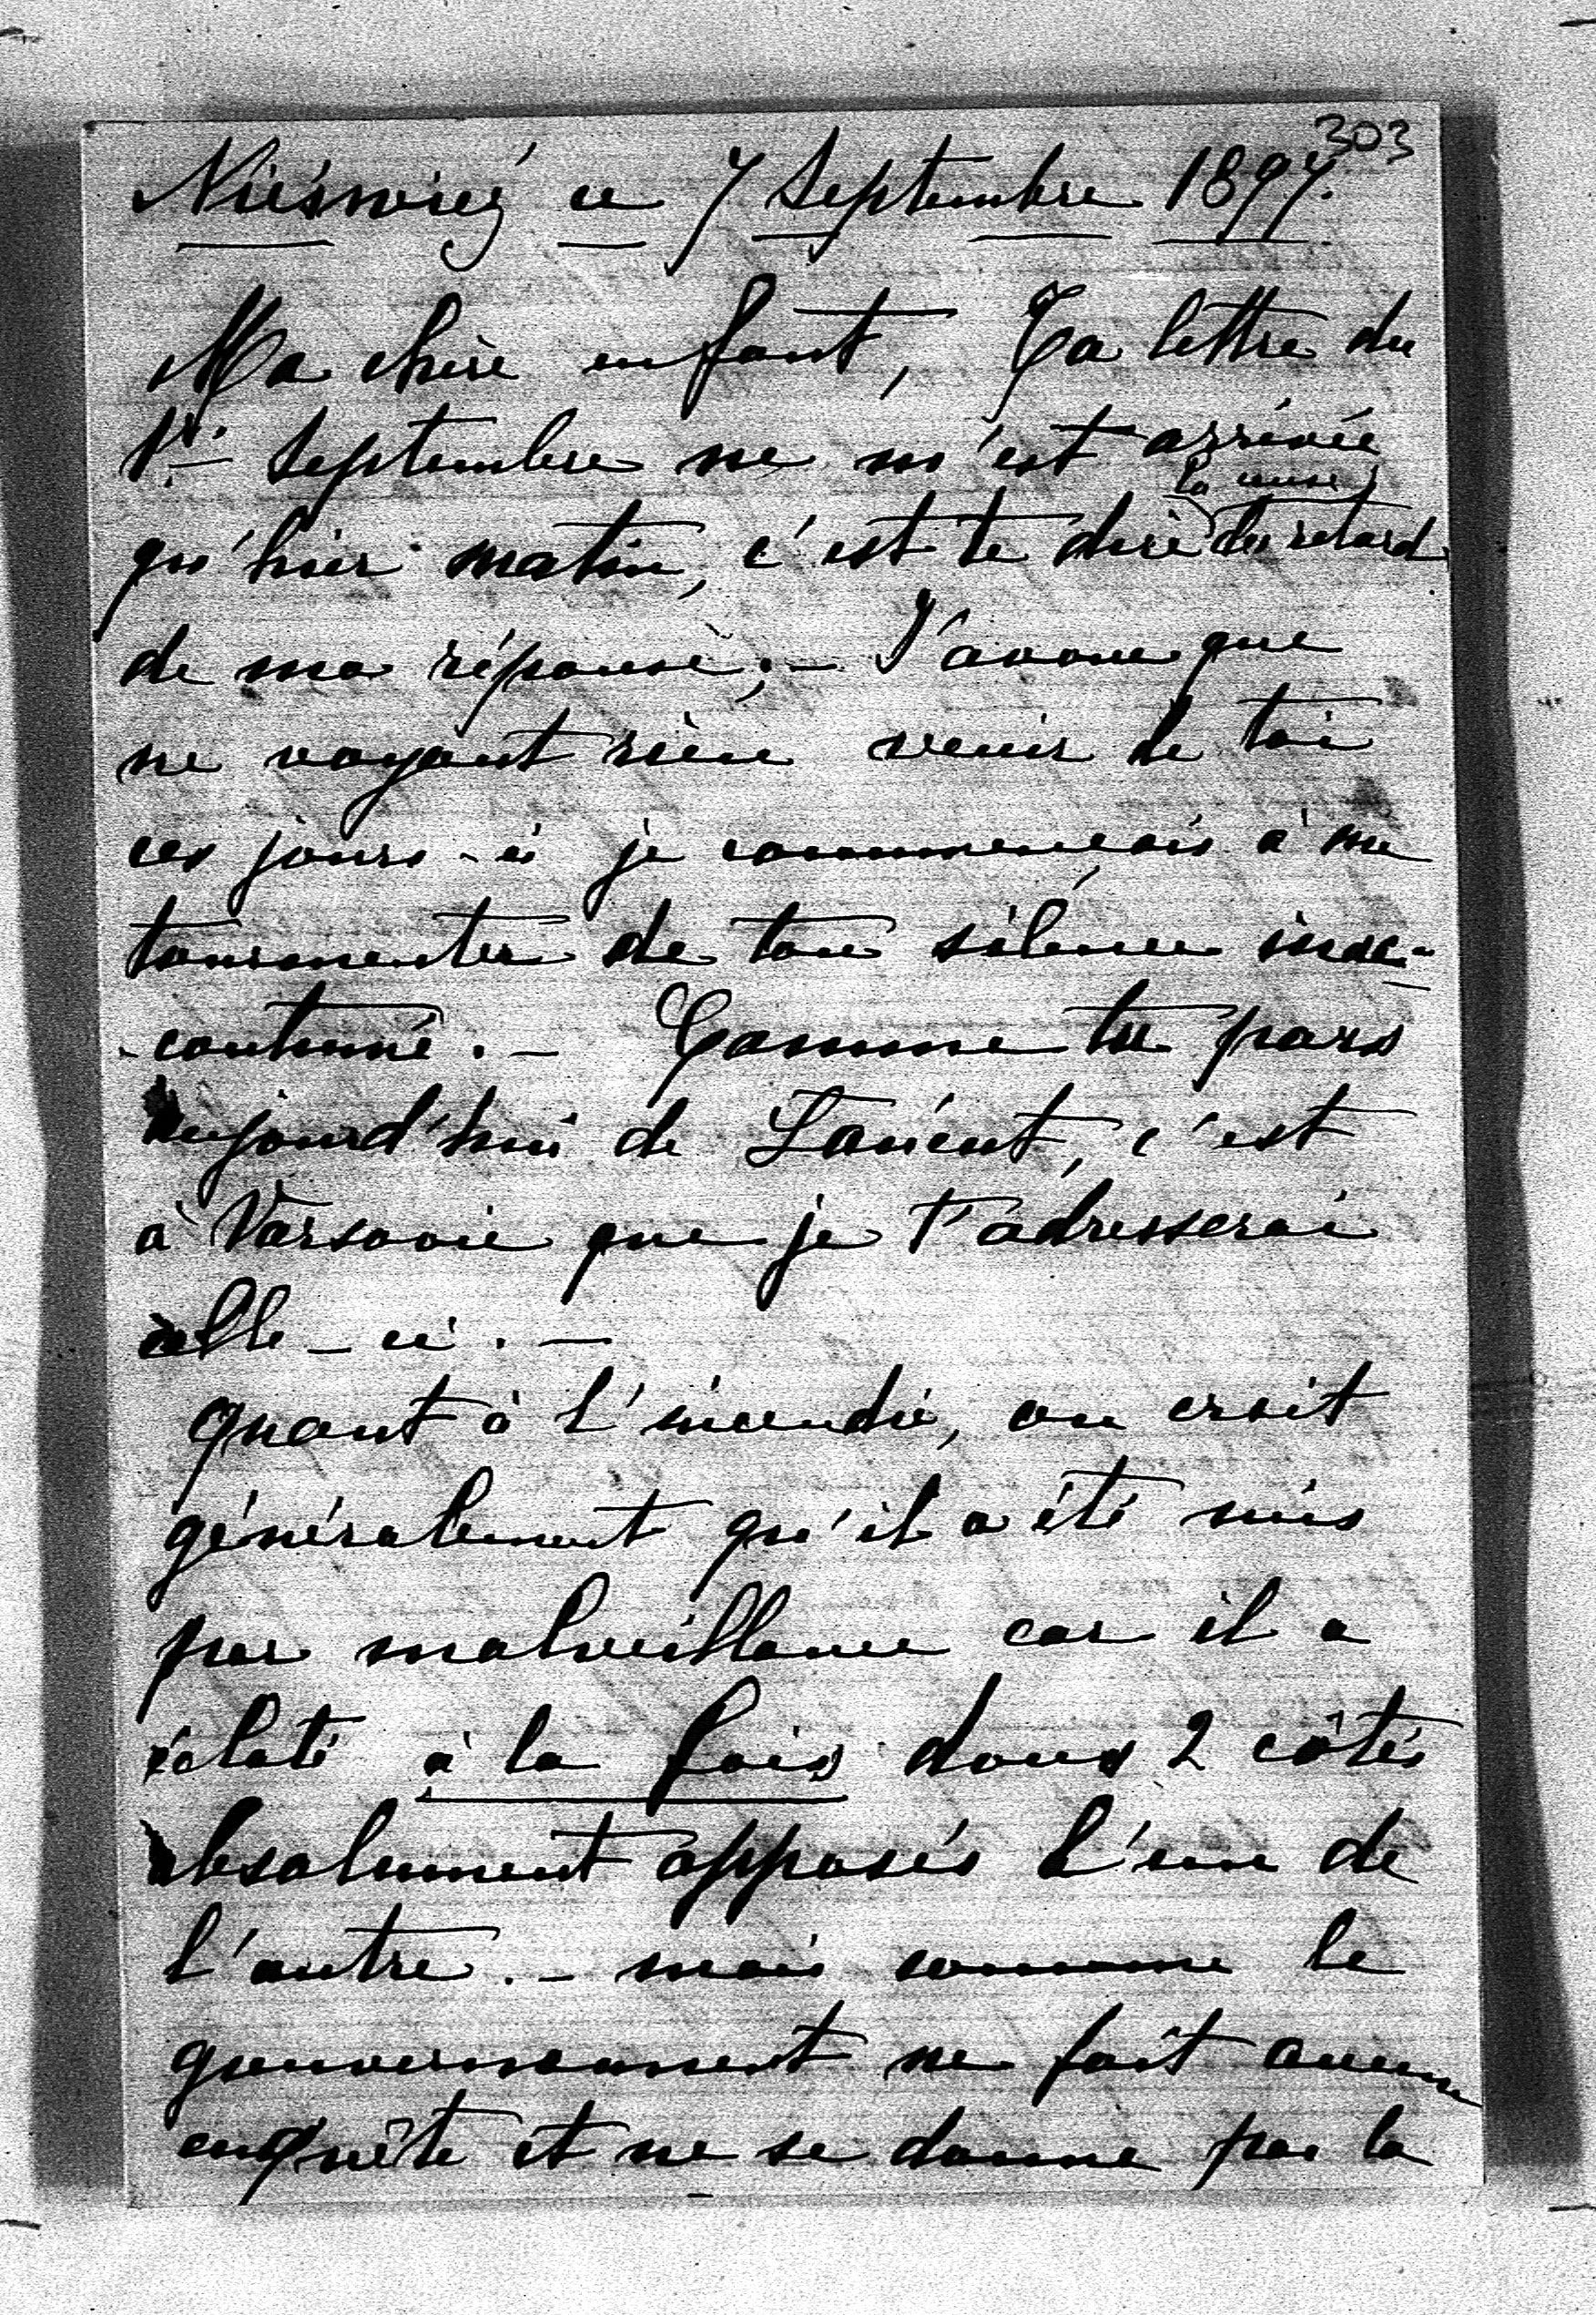 303
Nieśwież ce 7 Septembre 1897.
Ma chère enfant, Ta lettre du
1r. Septembre ne m'est arrivée
la cause
qu'hier matin, c'est te dire du retard
de ma réponse; – J'avoue que
ne voyant rien venir de toi
ces jours-ci je commençais à me
tourmenter de ton silence inac-
-coutumé. – Comme tu pars
aujourd'hui de Łańcut, c'est
à Varsovie que je t'adresserai
celle-ci. –
Quant à l'incendie, on croit
généralement qu'il a été mis
par malveillance car il a
éclaté à la fois dans 2 côtés
absolument opposés l'un de
l'autre. – mais comme le
gouvernement ne fait aucune
enquête et ne se donne pas la